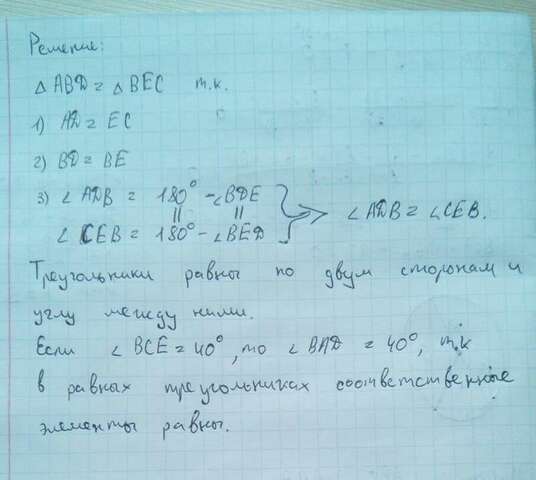 Решение:
△ ABD = △ BEC т.к.
1) AD = EC
2) BD = BE
3) ∠ ADB = 180° - ∠BDE
∠ CEB = 180° - ∠BED
=> ∠ ADB = ∠CEB.
Треугольники равны по двум сторонам и
углу между ними.
Если ∠ BCE = 40°, то ∠ BAD = 40°, т.к
в равных треугольниках соответственные
элементы равны.